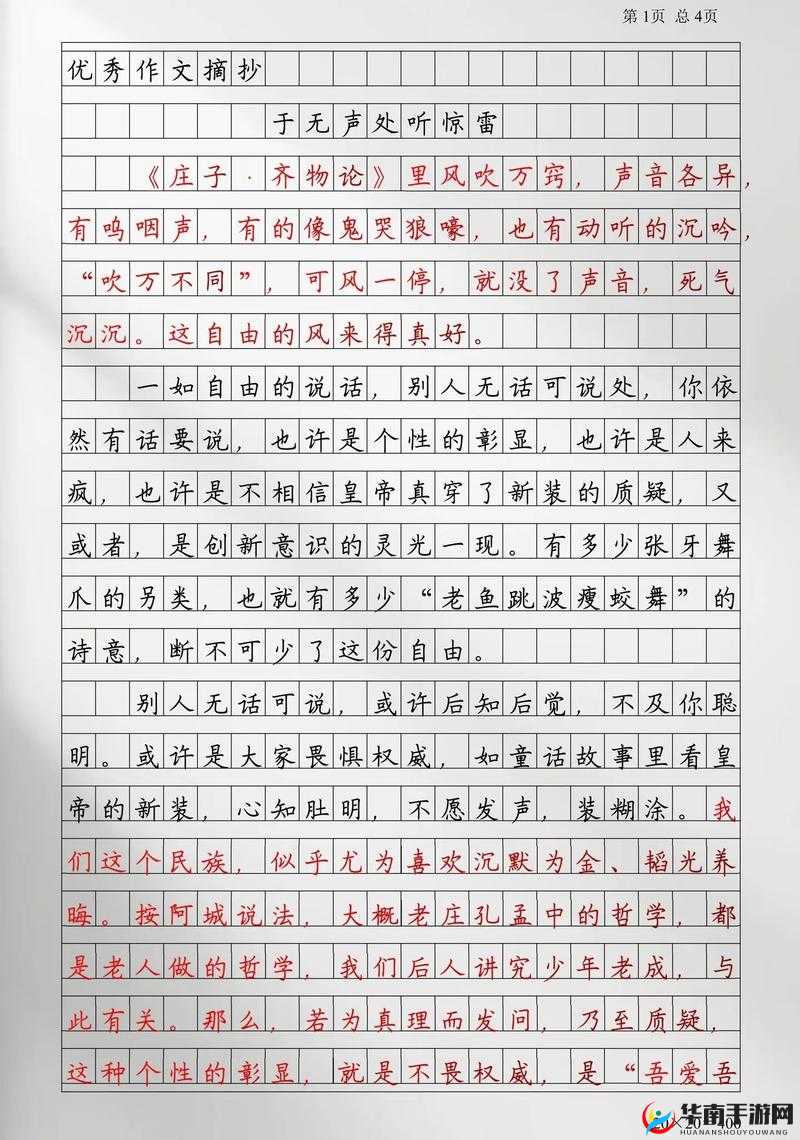 第1页 总4页
优秀作文摘抄
于无声处听惊雷
《庄子·齐物论》里风吹万窍，声音各异，
有呜咽声，有的像鬼哭狼嚎，也有动听的沉吟，
“吹万不同”，可风一停，就没了声音，死气
沉沉。这自由的风来得真好。
一如自由的说话，别人无话可说处，你依
然有话要说，也许是个性的彰显，也许是人来
疯，也许是不相信皇帝真穿了新装的质疑，又
或者，是创新意识的灵光一现。有多少张牙舞
爪的另类，也就有多少“老鱼跳波瘦蛟舞”的
诗意，断不可少了这份自由。
别人无话可说，或许后知后觉，不及你聪
明。或许是大家畏惧权威，如童话故事里看皇
帝的新装，心知肚明，不愿发声，装糊涂。我
们这个民族，似乎尤为喜欢沉默为金、韬光养
晦。按阿城说法，大概老庄孔孟中的哲学，都
是老人做的哲学，我们后人讲究少年老成，与
此有关。那么，若为真理而发问，乃至质疑，
这种个性的彰显，就是不畏权威，是“吾爱吾
华南手游网
HUANANSHOUYOUWANG